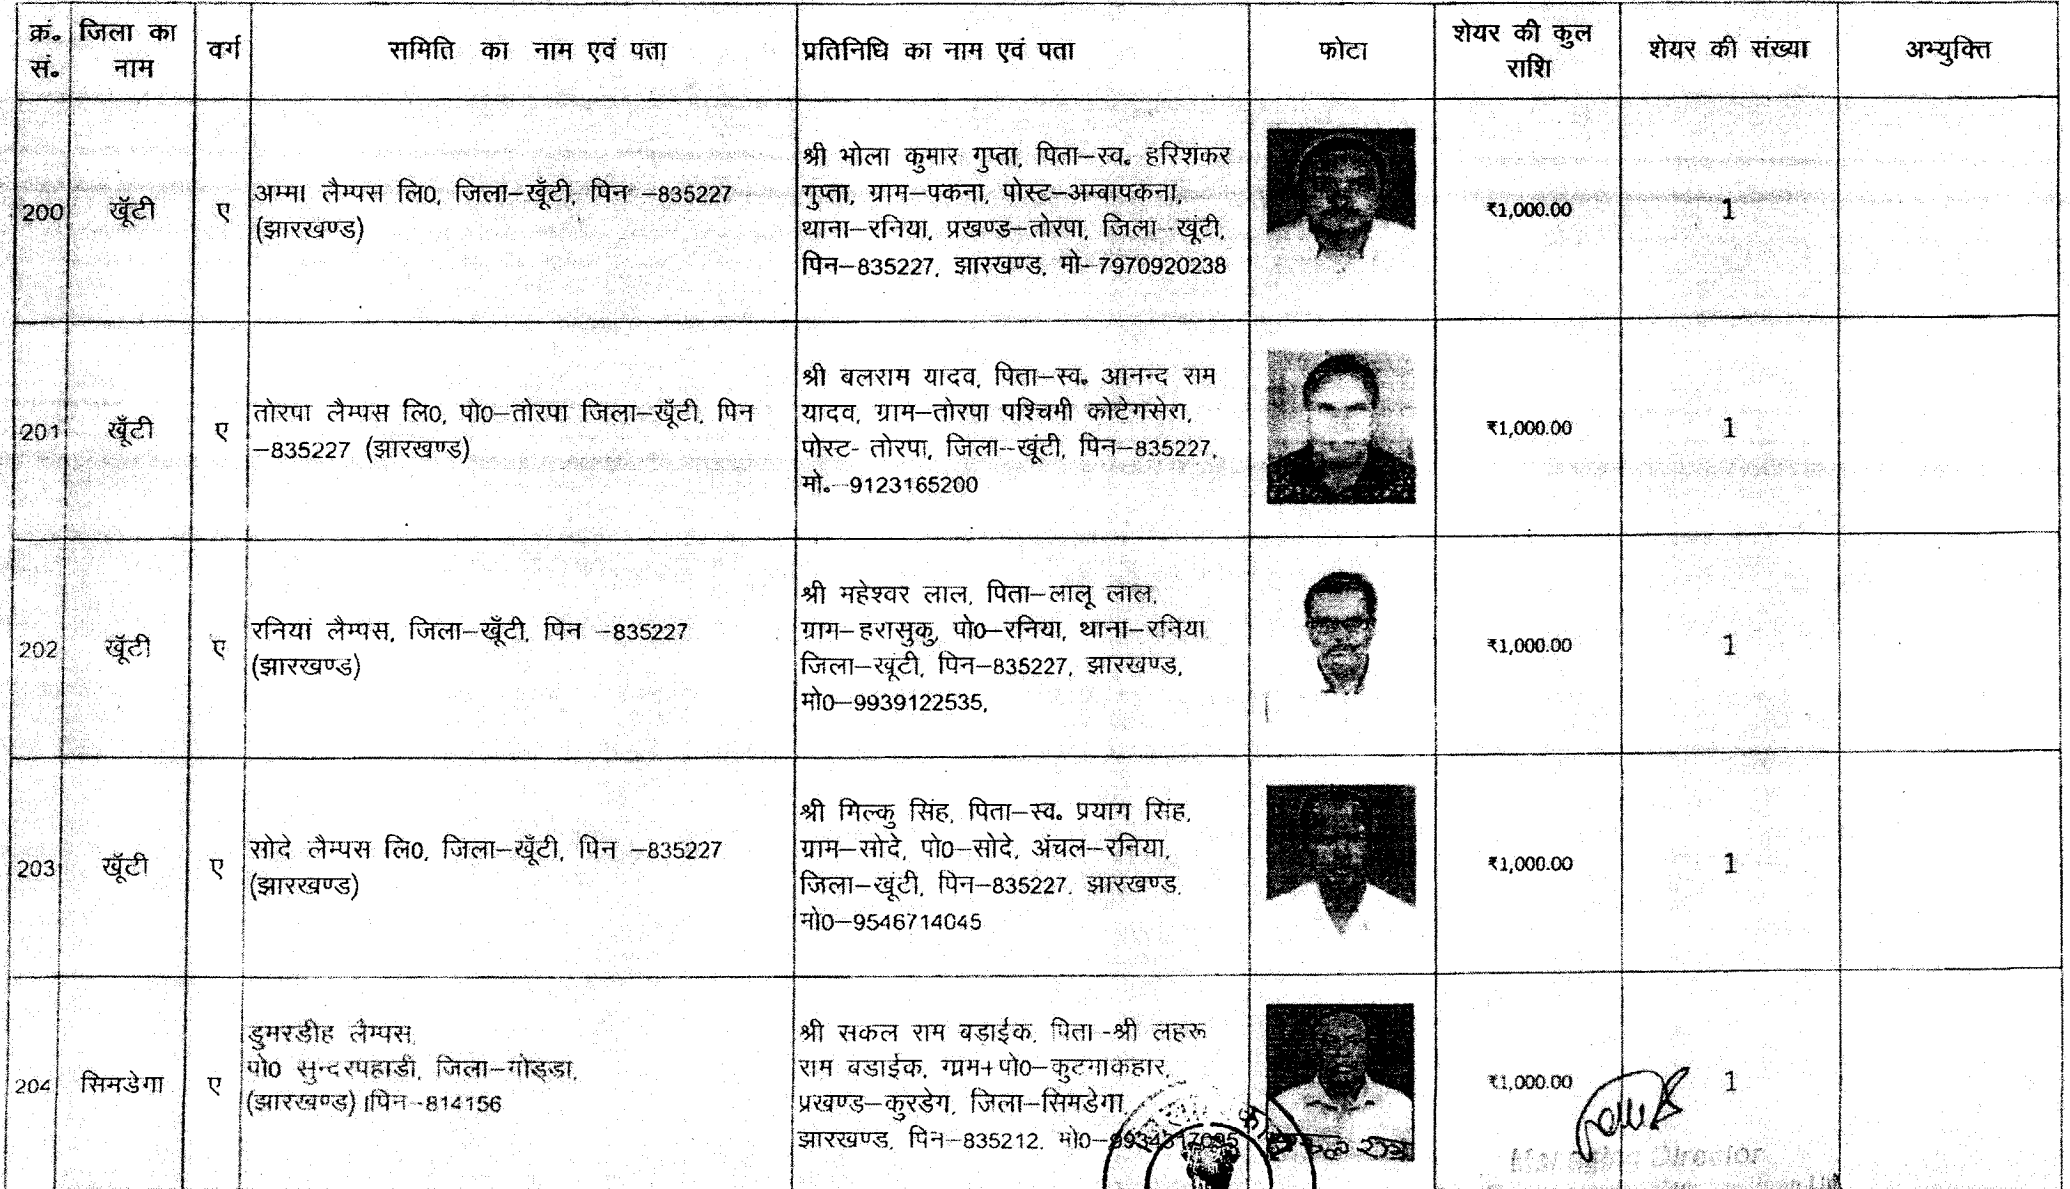 क्रं॰ सं॰ जिला का नाम वर्ग समिति का नाम एवं पता प्रतिनिधि का नाम एवं पता फोटा शेयर की कुल राशि शेयर की संख्या अभ्युक्ति
200 खूँटी ए
अम्मा लैम्पस लि0, जिला–खूँटी, पिन –835227
(झारखण्ड)
श्री भोला कुमार गुप्ता, पिता–स्व॰ हरिशंकर
गुप्ता, ग्राम–पकना, पोस्ट–अम्वापकना,
थाना–रनिया, प्रखण्ड–तोरपा, जिला–खूंटी,
पिन–835227, झारखण्ड, मो–7970920238
₹1,000.00 1
201 खूँटी ए
तोरपा लैम्पस लि0, पो0–तोरपा जिला–खूँटी, पिन
–835227 (झारखण्ड)
श्री बलराम यादव, पिता–स्व॰ आनन्द राम
यादव, ग्राम–तोरपा पश्चिमी कोटेगसेरा,
पोस्ट- तोरपा, जिला–खूंटी, पिन–835227,
मो॰–9123165200
₹1,000.00 1
202 खूँटी ए
रनियां लैम्पस, जिला–खूँटी, पिन –835227
(झारखण्ड)
श्री महेश्वर लाल, पिता–लालू लाल,
ग्राम–हरासुकु, पो0–रनिया, थाना–रनिया
जिला–खूंटी, पिन–835227, झारखण्ड,
मो0–9939122535,
₹1,000.00 1
203 खूँटी ए
सोदे लैम्पस लि0, जिला–खूँटी, पिन –835227
(झारखण्ड)
श्री मिल्कु सिंह, पिता–स्व॰ प्रयाग सिंह,
ग्राम–सोदे, पो0–सोदे, अंचल–रनिया,
जिला–खूंटी, पिन–835227, झारखण्ड,
मो0–9546714045
₹1,000.00 1
204 सिमडेगा ए
डुमरडीह लैम्पस,
पो0 सुन्दरपहाडी, जिला–गोड्डा,
(झारखण्ड)।पिन-814156
श्री सकल राम बड़ाईक, पिता -श्री लहरू
राम बडाईक, ग्राम+पो0–कुटमाकहार,
प्रखण्ड–कुरडेग, जिला–सिमडेगा,
झारखण्ड, पिन–835212, मो0–
₹1,000.00 1
Director